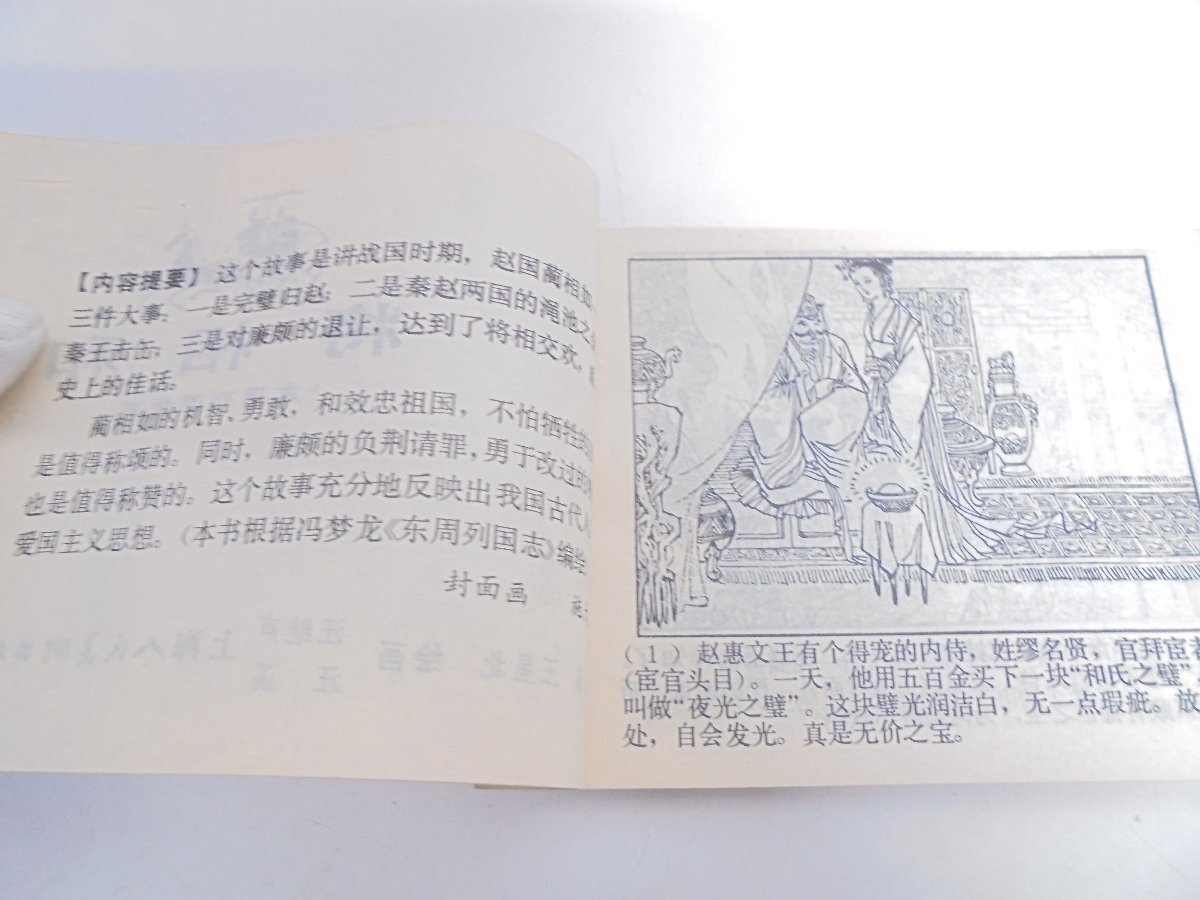 【内容提要】 这个故事是讲战国时期，赵国蔺相如
三件大事：一是完璧归赵；二是秦赵两国的渑池之
秦王击缶；三是对廉颇的退让，达到了将相交欢，
史上的佳话。
蔺相如的机智、勇敢，和效忠祖国，不怕牺牲的
是值得称颂的。同时，廉颇的负荆请罪，勇于改过的
也是值得称赞的。这个故事充分地反映出我国古代
爱国主义思想。（本书根据冯梦龙《东周列国志》编绘
封面画
（1） 赵惠文王有个得宠的内侍，姓缪名贤，官拜宦者
（宦官头目）。一天，他用五百金买下一块“和氏之璧”
叫做“夜光之璧”。这块璧光润洁白，无一点瑕疵。放
处，自会发光。真是无价之宝。